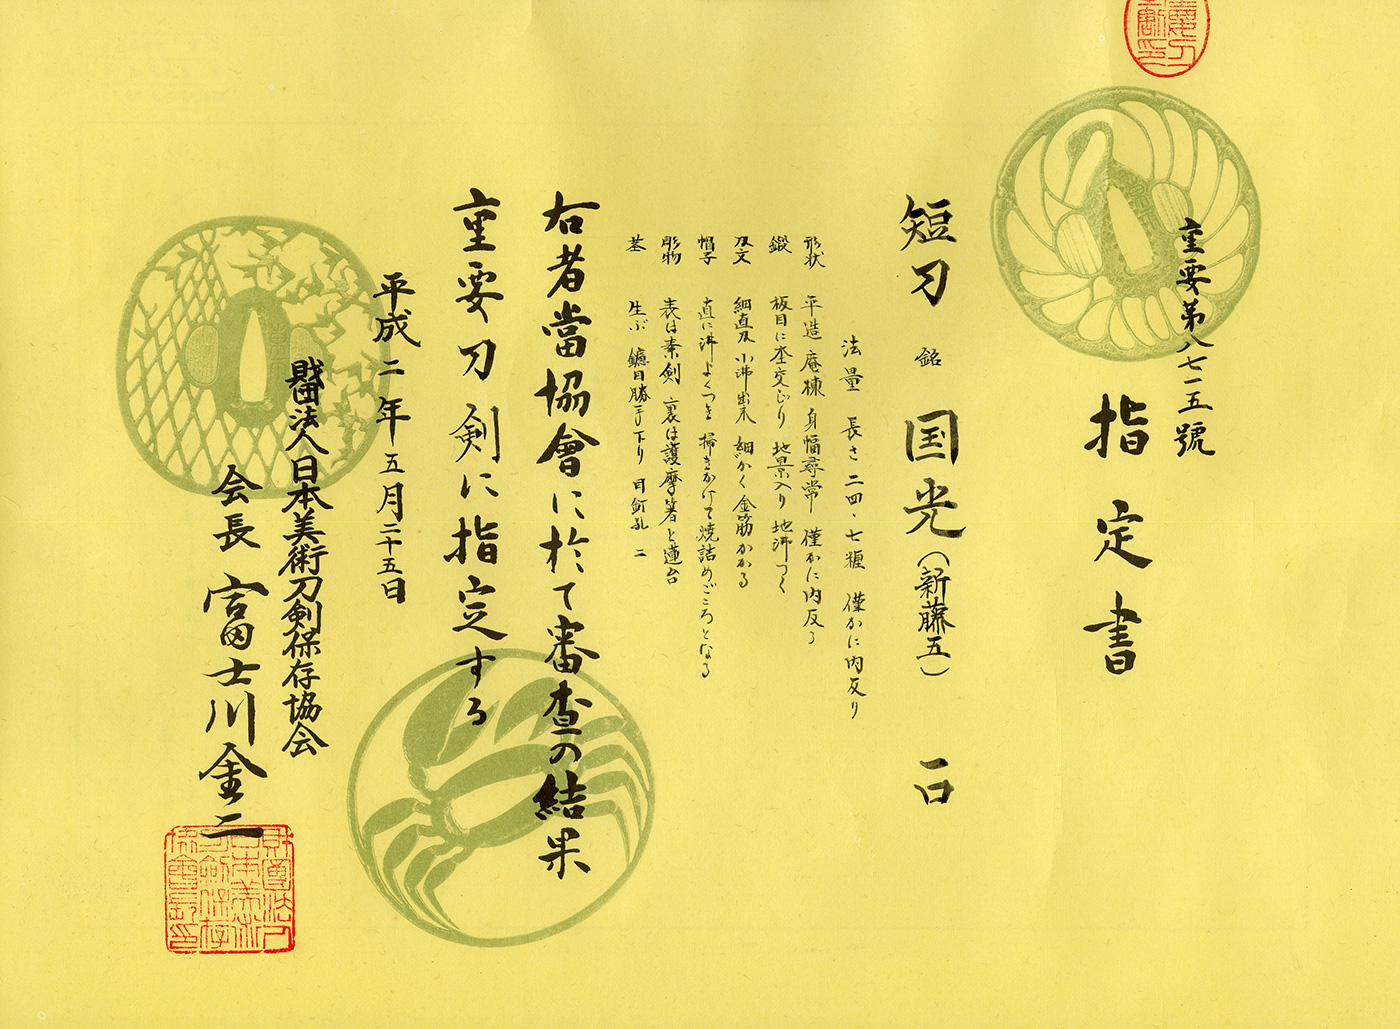 重要第八七一五號
指定書
短刀 銘 国光(新藤五) 一口
法量 長さ 二四・七糎 僅かに内反り
形状 平造 庵棟 身幅尋常 僅かに内反る
鍛 板目に杢交じり 地景入り 地沸つく
刃文 細直刃 小沸出来 細かく金筋かかる
帽子 直に沸よくつき 掃きかけて焼詰めごころとなる
彫物 表は素剣 裏は護摩箸と蓮台
茎 生ぶ 鑢目勝手下り 目釘孔 二
右者當協會に於て審査の結果
重要刀剣に指定する
平成二年五月二十五日
財団法人日本美術刀剣保存協会
会長 富士川金二